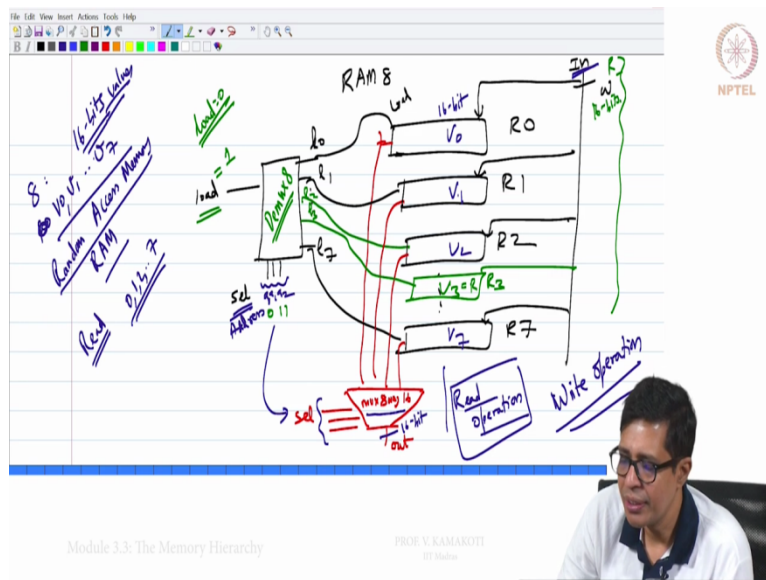 File Edit View Insert Actions Tools Help
RAM 8
In
R
w
16-bits
NPTEL
load=0
16-bits values
8:
v0, v1, ... v7
Random Access Memory
RAM
Read
0,1,2,..7
load = 1
Demux 8
l0
l1
l2
l3
l7
load
16-bit
V0
R0
V1
R1
V2
R2
V3 = R
R3
V7
R7
sel
Address
0 11
sel
mux 8way 16
16-bit
out
Read
operation
Write operation
Module 3.3: The Memory Hierarchy
PROF. V. KAMAKOTI
IIT Madras